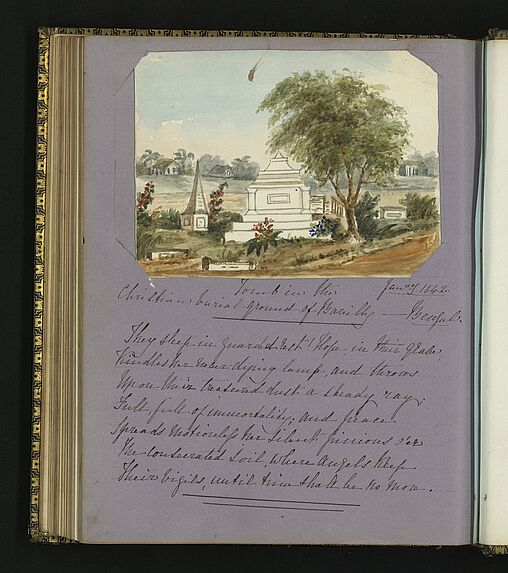 Tomb in the Jany 1842.
Christian burial ground of Bareilly — Bengal.
They sleep in guarded rest! Hope in their grave,
Kindles her never dying lamp, and throws
Upon their treasured dust a steady ray;
Full, full of immortality; and peace
Spreads motionless her silent pinions o'er
The consecrated soil, where Angels keep
Their vigils, until time shall be no more.